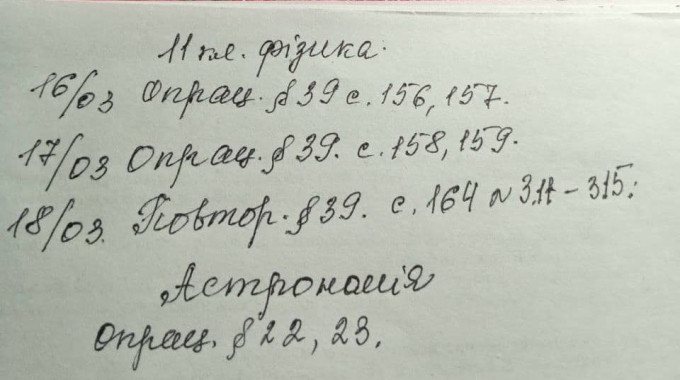 11 кл. фізика.
16/03 Опрац. § 39 с. 156, 157.
17/03 Опрац. § 39. с. 158, 159.
18/03. Повтор. § 39. с. 164 № 3.11 - 3.15.
Астрономія
Опрац. § 22, 23.